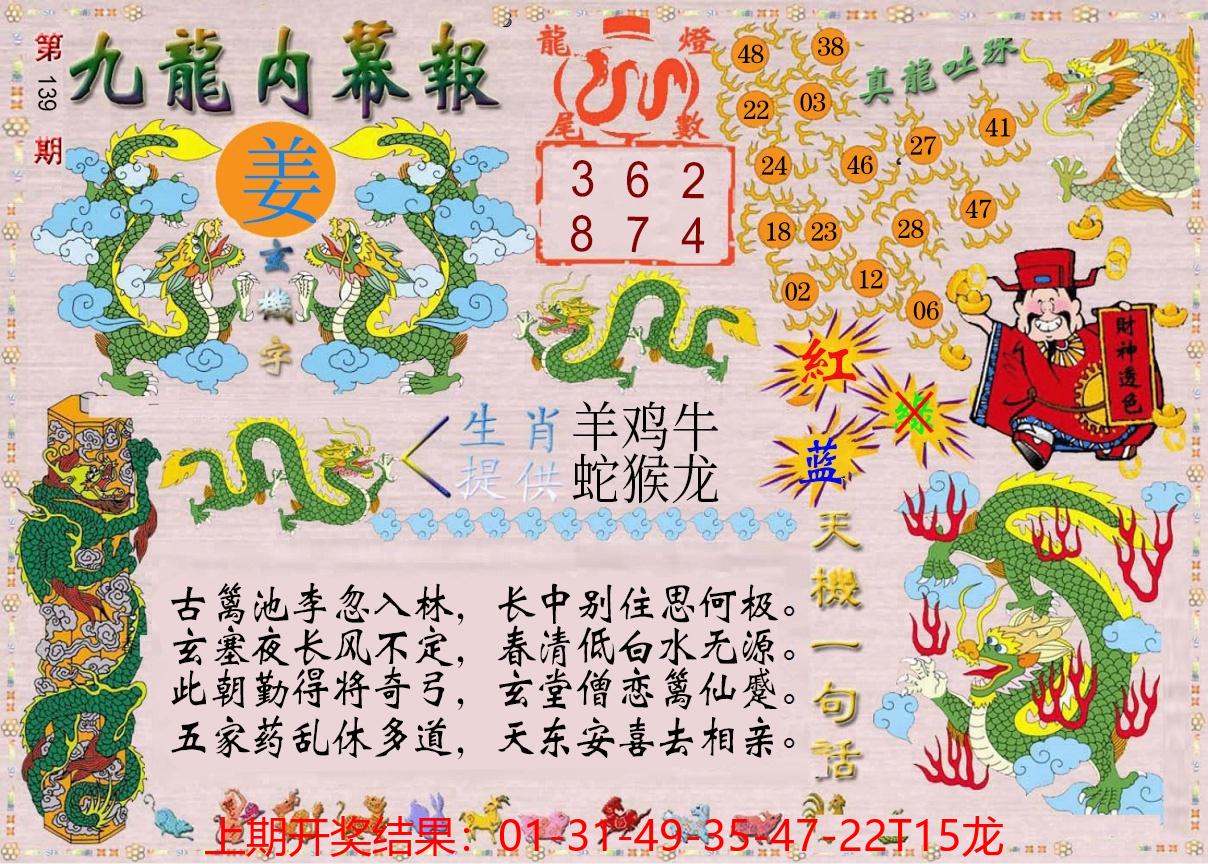 第139期
九龍内幕報
姜
玄機字
龍燈
尾數
3 6 2
8 7 4
真龍吐珠
48 38
22 03
27 41
24 46
18 23 28 47
02 12 06
紅
绿
蓝
財神透色
生肖 羊鸡牛
提供 蛇猴龙
天機一句話
古篱池李忽入林，长中别住思何极。
玄塞夜长风不定，春清低白水无源。
此朝勤得将奇弓，玄堂僧恋篱仙蹙。
五家药乱休多道，天东安喜去相亲。
上期开奖结果：01-31-49-35-47-22T15龙